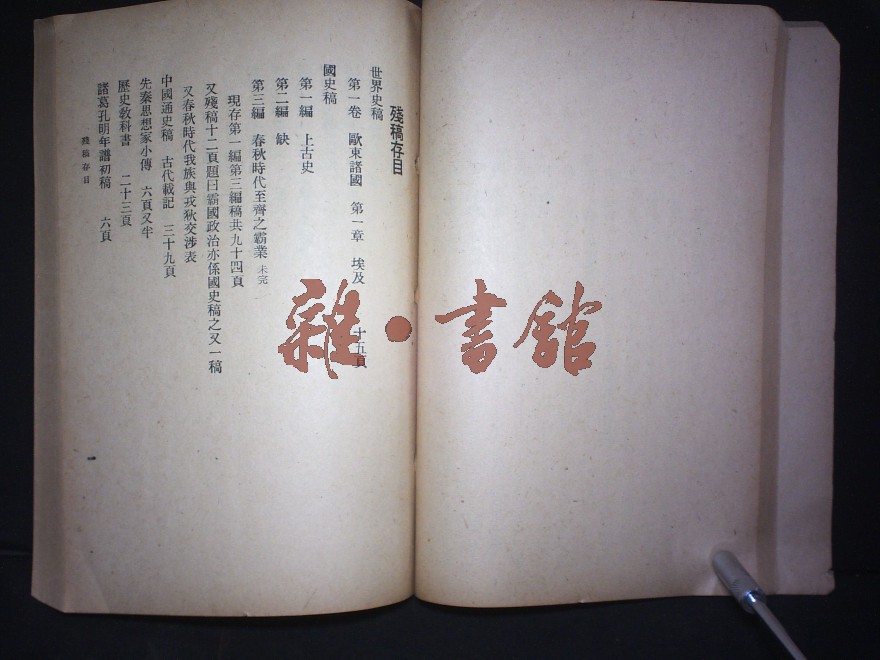 殘稿存目
世界史稿
第一卷 歐東諸國 第一章 埃及 十五頁
國史稿
第一編 上古史
第二編 缺
第三編 春秋時代至齊之霸業 未完
現存第一編第三編稿共九十四頁
又殘稿十二頁題曰霸國政治亦係國史稿之又一稿
又春秋時代我族與戎狄交涉表
中國通史稿 古代載記 三十九頁
先秦思想家小傳 六頁又半
歷史教科書 二十三頁
諸葛孔明年譜初稿 六頁
殘稿存目
一
雜·書館